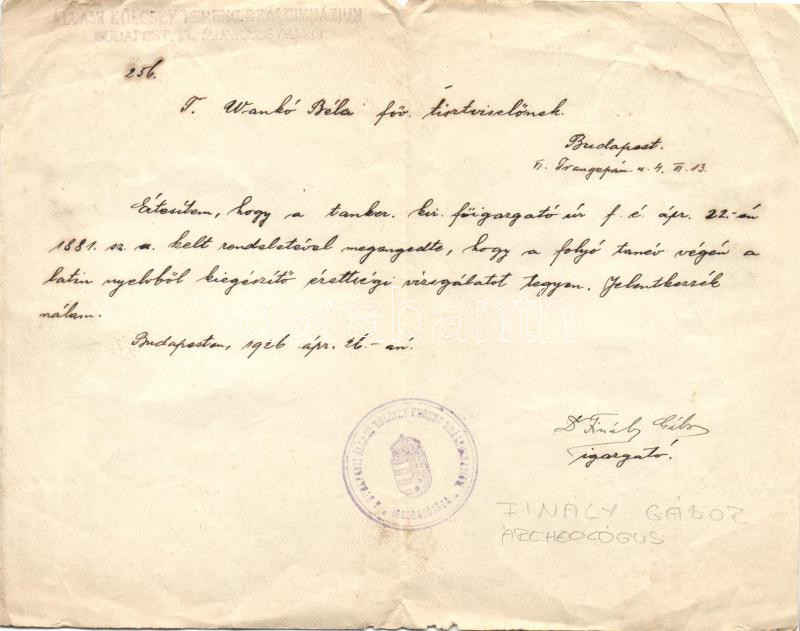 ÁLLAMI KÖLCSEY FERENC REÁLGIMNÁZIUM
BUDAPEST, VI., MUNKÁCSY-U.
256.
T. Wankó Béla föv. tisztviselőnek.
Budapest.
VI. Frangepán u. 4. VI. 13.
Értesitem, hogy a tanker. kir. főigazgató úr f. é. ápr. 22.-én
1881. sz. a. kelt rendeletével megengedte, hogy a folyó tanév végén a
latin nyelvből kiegészítő érettségi vizsgálatot tegyen. Jelentkezzék
nálam.
Budapesten, 1926 ápr. 26.-án.
Dr Finály Gábor
igazgató.
BUDAPESTI ÁLLAMI KÖLCSEY FERENC REÁLGIMNÁZIUM
IGAZGATÓSÁGA
FINÁLY GÁBOR
ARCHEOLÓGUS